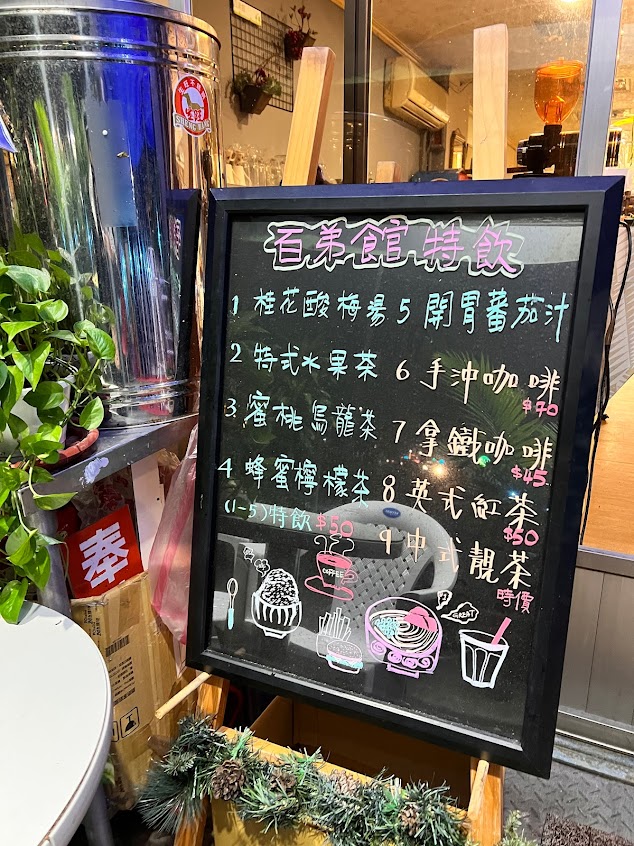 百弟館特飲
1 桂花酸梅湯
2 特式水果茶
3 蜜桃烏龍茶
4 蜂蜜檸檬茶
(1-5)特飲 $50
5 開胃蕃茄汁
6 手沖咖啡
$70
7 拿鐵咖啡
$45
8 英式紅茶
$50
9 中式靚茶
時價
COFFEE
GREAT
奉